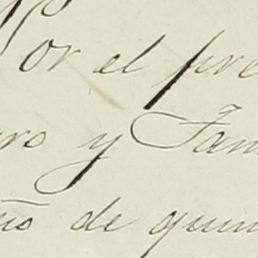 Por el pre
ro y Fam
ño de quin